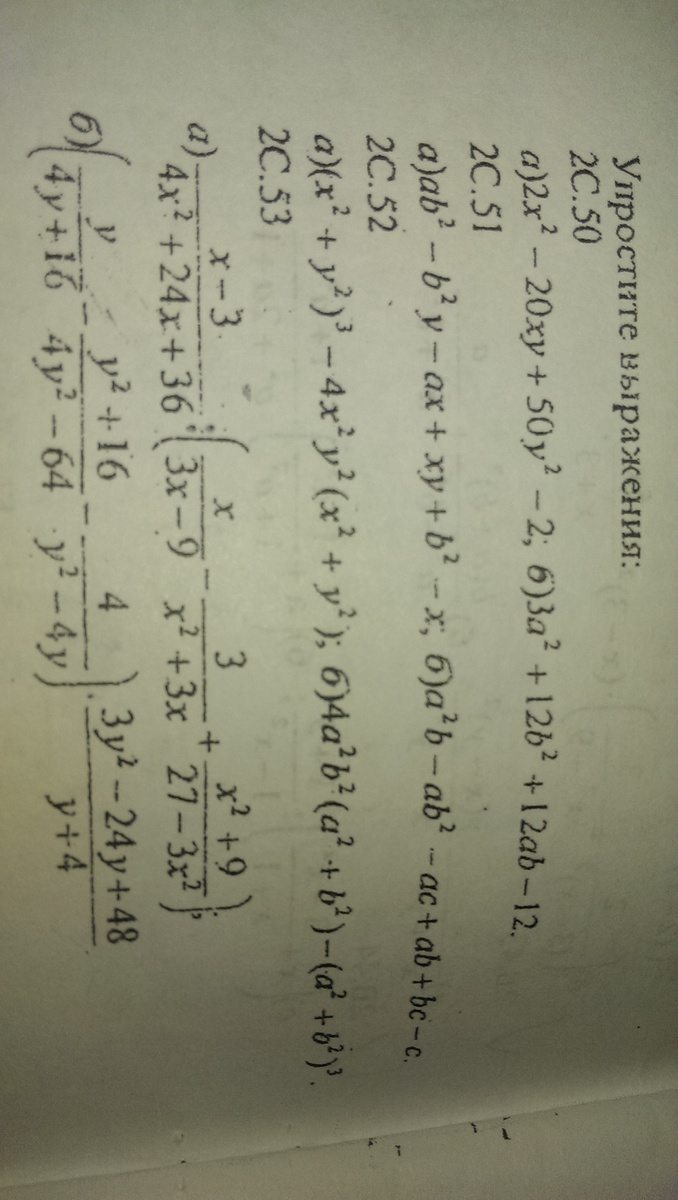 Упростите выражения:
2С.50
а)2x² − 20xy + 50y² − 2; б)3a² + 12b² + 12ab − 12.
2С.51
а)ab² − b²y − ax + xy + b² − x; б)a²b − ab² − ac + ab + bc − c.
2С.52
а)(x² + y²)³ − 4x²y²(x² + y²); б)4a²b²(a² + b²) − (a² + b²)³.
2С.53
а) (x − 3)/(4x² + 24x + 36) : (x/(3x − 9) − 3/(x² + 3x) + (x² + 9)/(27 − 3x²));
б) (y/(4y + 16) − (y² + 16)/(4y² − 64) − 4/(y² − 4y)) · (3y² − 24y + 48)/(y + 4)